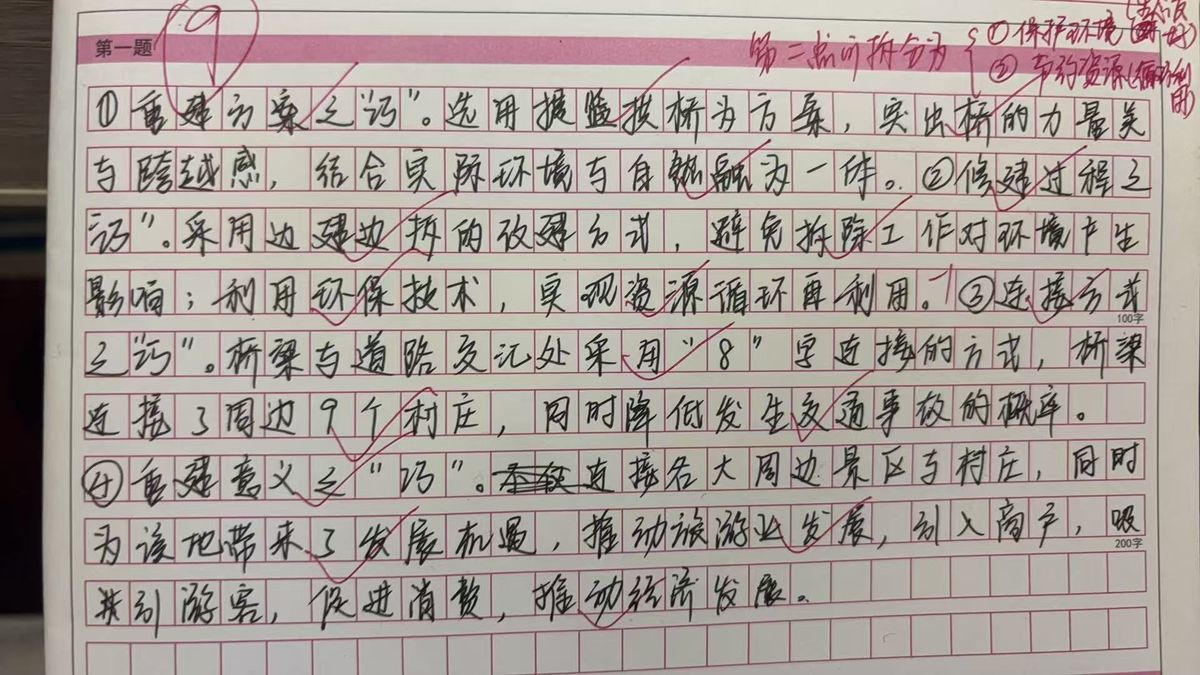 第一题
9
第二点可拆分为
①保护环境
②节约资源(循环利用)
①重建方案之“巧”。选用提篮拱桥为方案,突出桥的力量美
与跨越感,结合实际环境与自然融为一体。②修建过程之
“巧”。采用边建边拆的改建方式,避免拆除工作对环境产生
影响;利用环保技术,实现资源循环再利用。③连接方式
100字
之“巧”。桥梁与道路交汇处采用“8”字连接的方式,桥梁
连接了周边9个村庄,同时降低发生交通事故的概率。
④重建意义之“巧”。连接各大周边景区与村庄,同时
为该地带来了发展机遇,推动旅游业发展,引入商户,吸
200字
引游客,促进消费,推动经济发展。